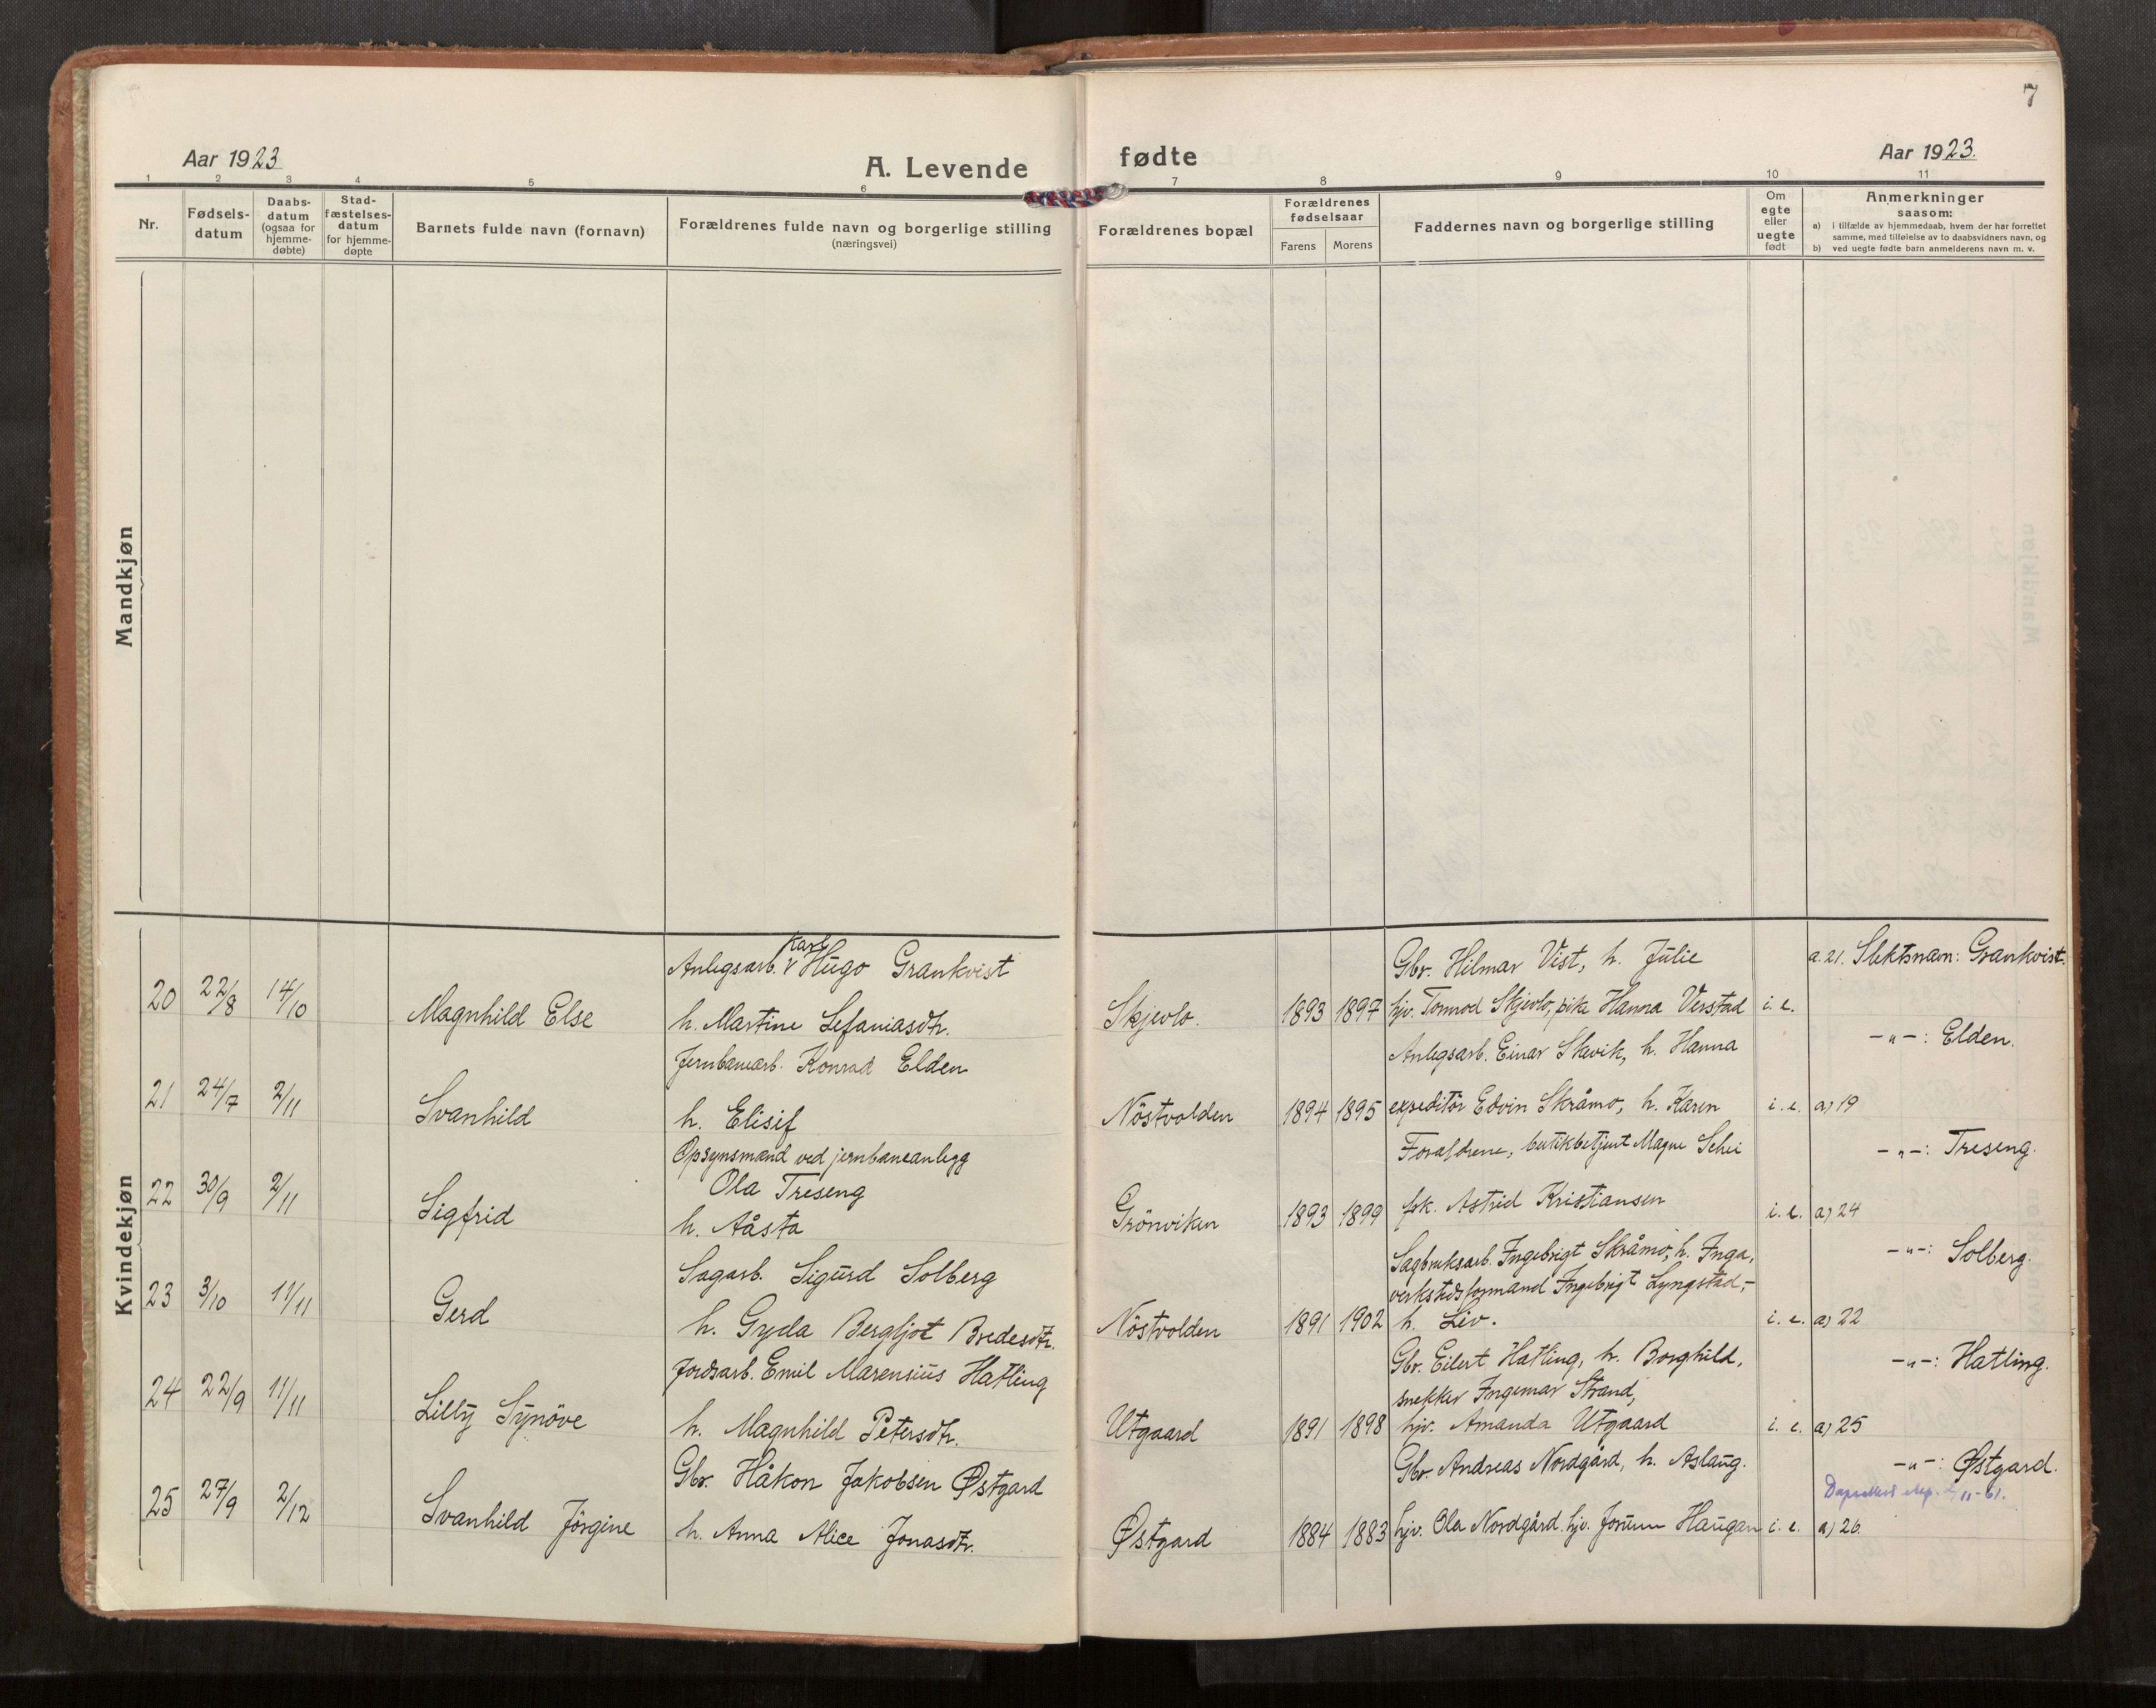 7
Aar 1923
A. Levende fødte
Aar 1923.
1 2 3 4 5 6 7 8 9 10 11
Nr.
Fødsels-
datum
Daabs-
datum
(ogsaa for
hjemme-
døbte)
Stad-
fæstelses-
datum
for hjemme-
døpte
Barnets fulde navn (fornavn)
Forældrenes fulde navn og borgerlige stilling
(næringsvei)
Forældrenes bopæl
Forældrenes
fødselsaar
Farens
Morens
Faddernes navn og borgerlige stilling
Om
egte
eller
uegte
født
Anmerkninger
saasom:
a) i tilfælde av hjemmedaab, hvem der har forrettet
samme, med tilføielse av to daabsvidners navn, og
b) ved uegte fødte barn anmelderens navn m. v.
Mandkjøn
Kvindekjøn
20 22/8 14/10
Magnhild Else
Karl
Anlegsarb. v Hugo Grankvist
h. Martine Sefaniasdtr.
Skjevlo.
1893 1897
Gbr. Hilmar Vist, h. Julie
hjv. Tomrod Skjevlo, pike Hanna Verstad
Anlegsarb. Einar Skavik, h. Hanna
i. e.
a. 21. Slektsnavn: Grankvist.
21 24/7 2/11
Svanhild
Jernbanearb. Konrad Elden
h. Elisif
Nöstvolden
1894 1895
expeditör Edvin Skråmo, h. Karen
i. e.
-"-: Elden.
a) 19
22 30/9 2/11
Sigfrid
Opsynsmand ved jernbaneanlegg
Ola Treseng
h. Aåsta
Grönviken
1893 1899
Foraldrene, butikbetjent Magne Schei
frk. Astrid Kristiansen
i. e.
-"-: Treseng.
a) 24
23 3/10 11/11
Gerd
Sagarb. Sigurd Solberg
h. Gyda Bergljot Bredesdtr.
Nöstvolden
1891 1902
Sagbruksarb. Ingebrigt Skråmo, h. Inga,
verkstedsformand Ingebrigt Lyngstad,-
h. Liv.
i. e.
-"-: Solberg.
a) 22
24 22/9 11/11
Lilly Synöve
Jordarb. Emil Marensius Hatling
h. Magnhild Petersdtr.
Utgaard
1891 1898
Gbr. Eilert Hatling, h. Borghild,
snekker Ingemar Strand,
hjv. Amanda Utgaard
i. e.
-"-: Hatling.
a) 25
25 27/9 2/12
Svanhild Jörgine
Gbr. Håkon Jakobsen Østgard
h. Anna Alice Jonasdtr.
Østgard
1884 1883
Gbr. Andreas Nordgård, h. Aslaug.
hjv. Ola Nordgård. hjv. Jorunn Haugan
i. e.
-"-: Østgard.
11-61.
a) 26.